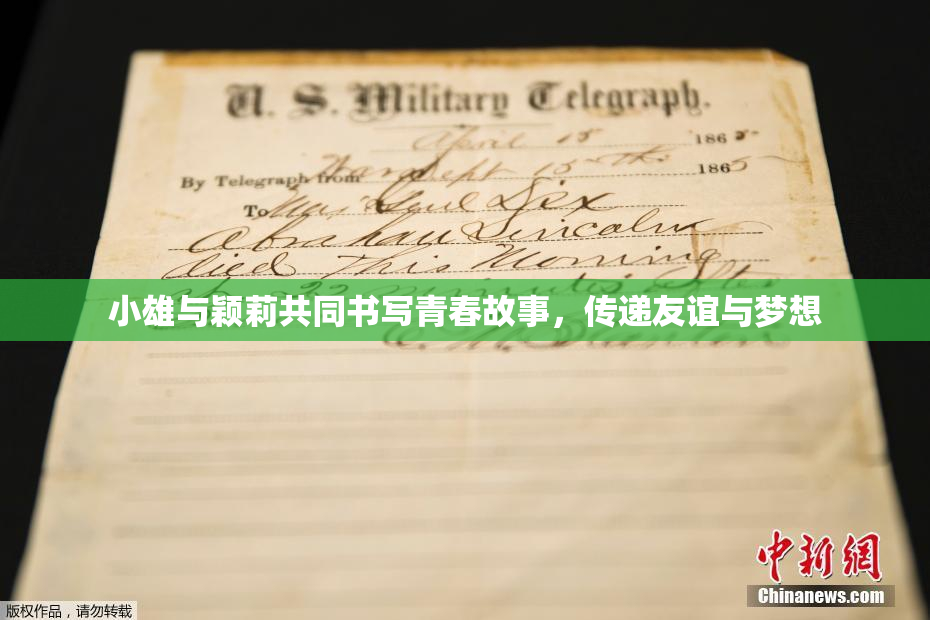 U. S. Military Telegraph.
April 15 1865
By Telegraph from War Dept 15th 1865
To Maj Genl Dix
Abraham Lincoln
died This Morning
22 minutes after
小雄与颖莉共同书写青春故事，传递友谊与梦想
E. M. Stanton
中新网
Chinanews.com
版权作品，请勿转载